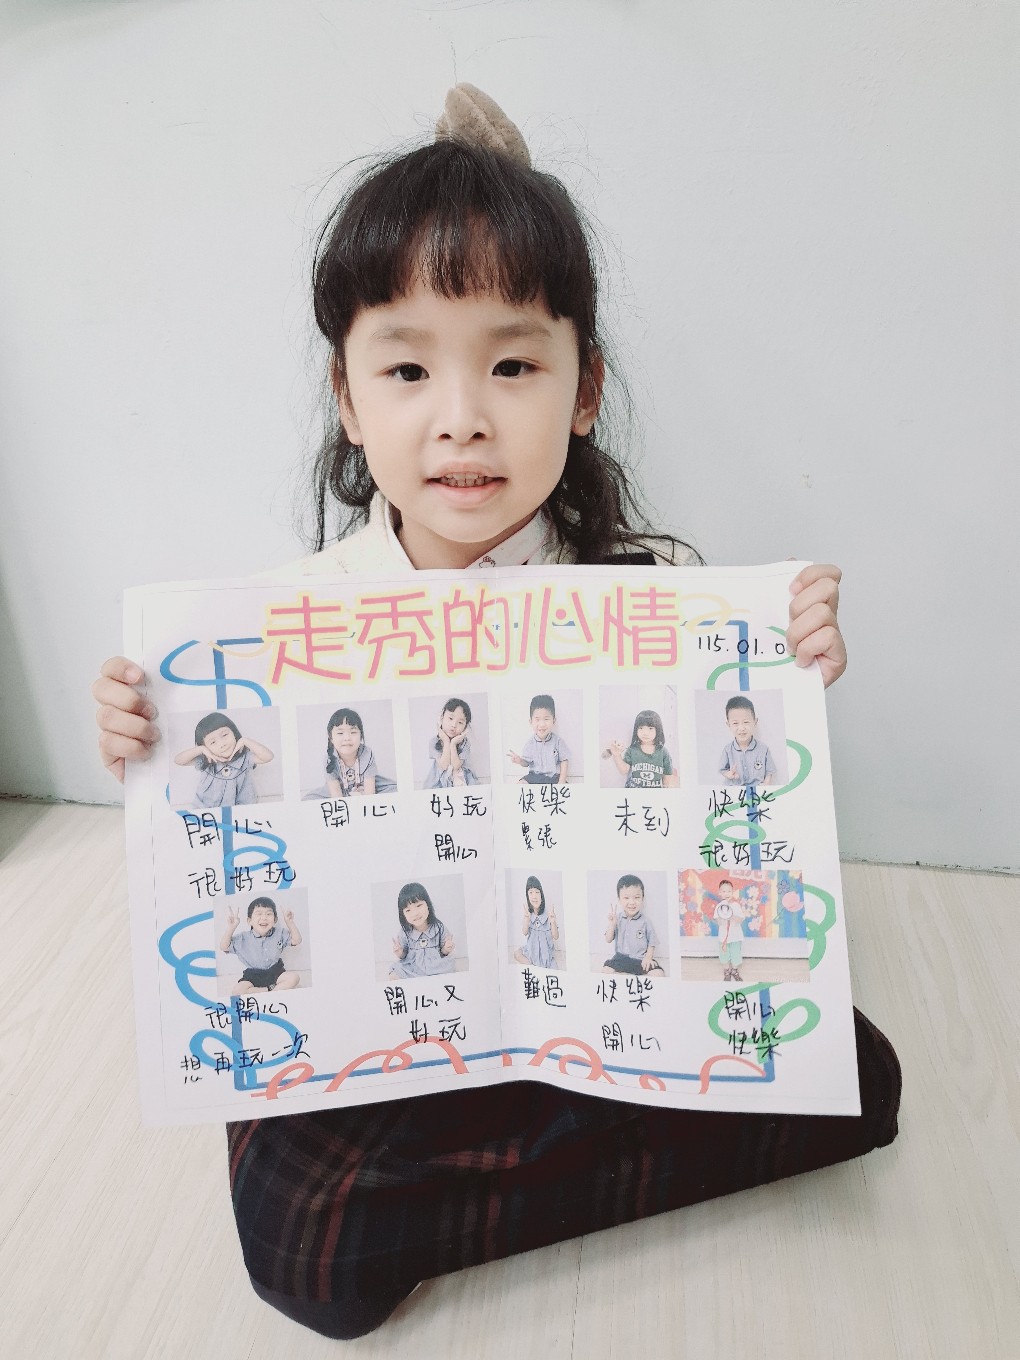 走秀的心情
115.01.0
MICHIGAN
SOFTBALL
開心
很好玩
開心
好玩
開心
快樂
緊張
未到
快樂
很好玩
很開心
想再玩一次
開心又
好玩
難過
快樂
開心
開心
快樂